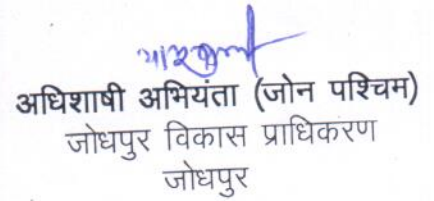 अधिशाषी अभियंता (जोन पश्चिम)
जोधपुर विकास प्राधिकरण
जोधपुर